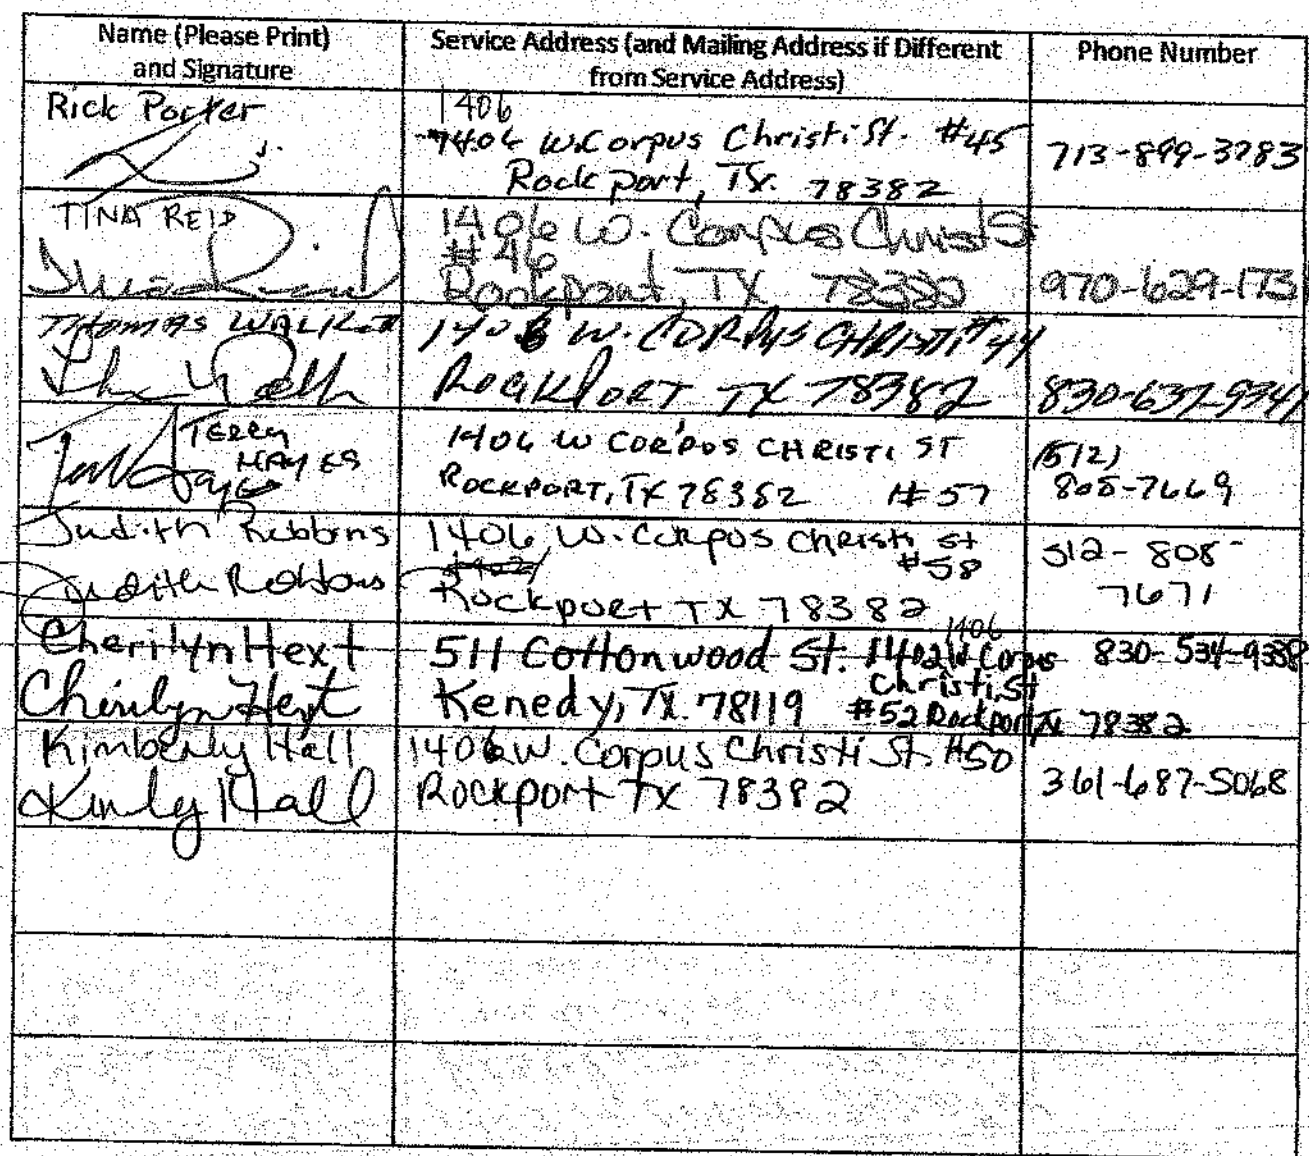 Name (Please Print)
and Signature
Service Address (and Mailing Address if Different
from Service Address)
Phone Number
Rick Porter
1406
1406 W. Corpus Christi St. #45
Rockport, TX. 78382
713-899-3783
TINA REID
1406 W. Corpus Christi St
#46
Rockport, TX 78382
970-629-1731
THOMAS WALKER
1406 W. CORPUS CHRISTI #44
ROCKPORT TX 78382
830-637-9341
TERRY
HAYES
1406 W CORPUS CHRISTI ST
ROCKPORT, TX 78382 #57
(512)
808-7669
Judith Robbins
Judith Robbins
1406 W. Corpus Christi St
#58
Rockport TX 78382
512-808-
7671
Cherilyn Hext
Cherilyn Hext
511 Cottonwood St.
Kenedy, TX. 78119
1406
1402 W Corpus
Christi St
#52 Rockport, TX 78382
830-534-9338
Kimberly Hall
Kimberly Hall
1406 W. Corpus Christi St. #50
Rockport TX 78382
361-687-5068